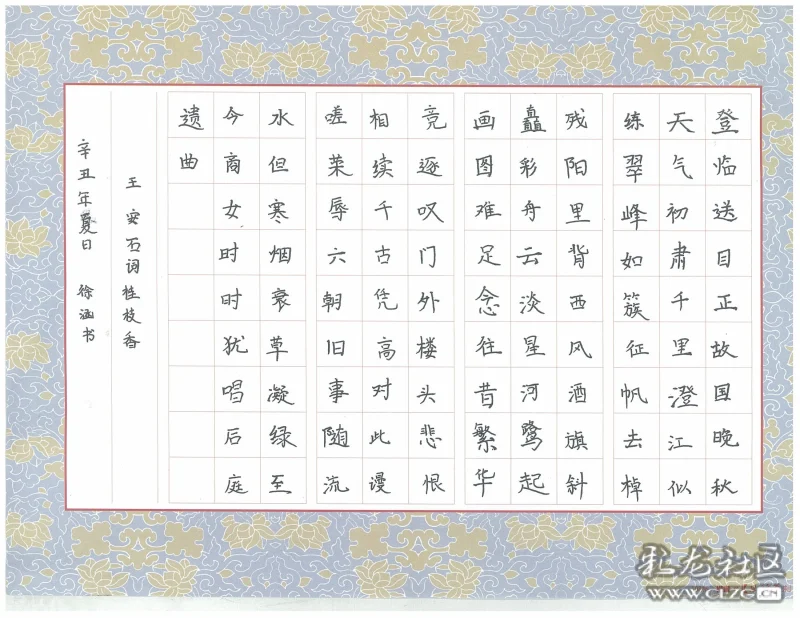 登临送目正故国晚秋
天气初肃千里澄江似
练翠峰如簇征帆去棹
残阳里背西风酒旗斜
矗彩舟云淡星河鹭起
画图难足念往昔繁华
竞逐叹门外楼头悲恨
相续千古凭高对此谩
嗟荣辱六朝旧事随流
水但寒烟衰草凝绿至
今商女时时犹唱后庭
遗曲
王安石词桂枝香
辛丑年夏日 徐涵书
龙社区